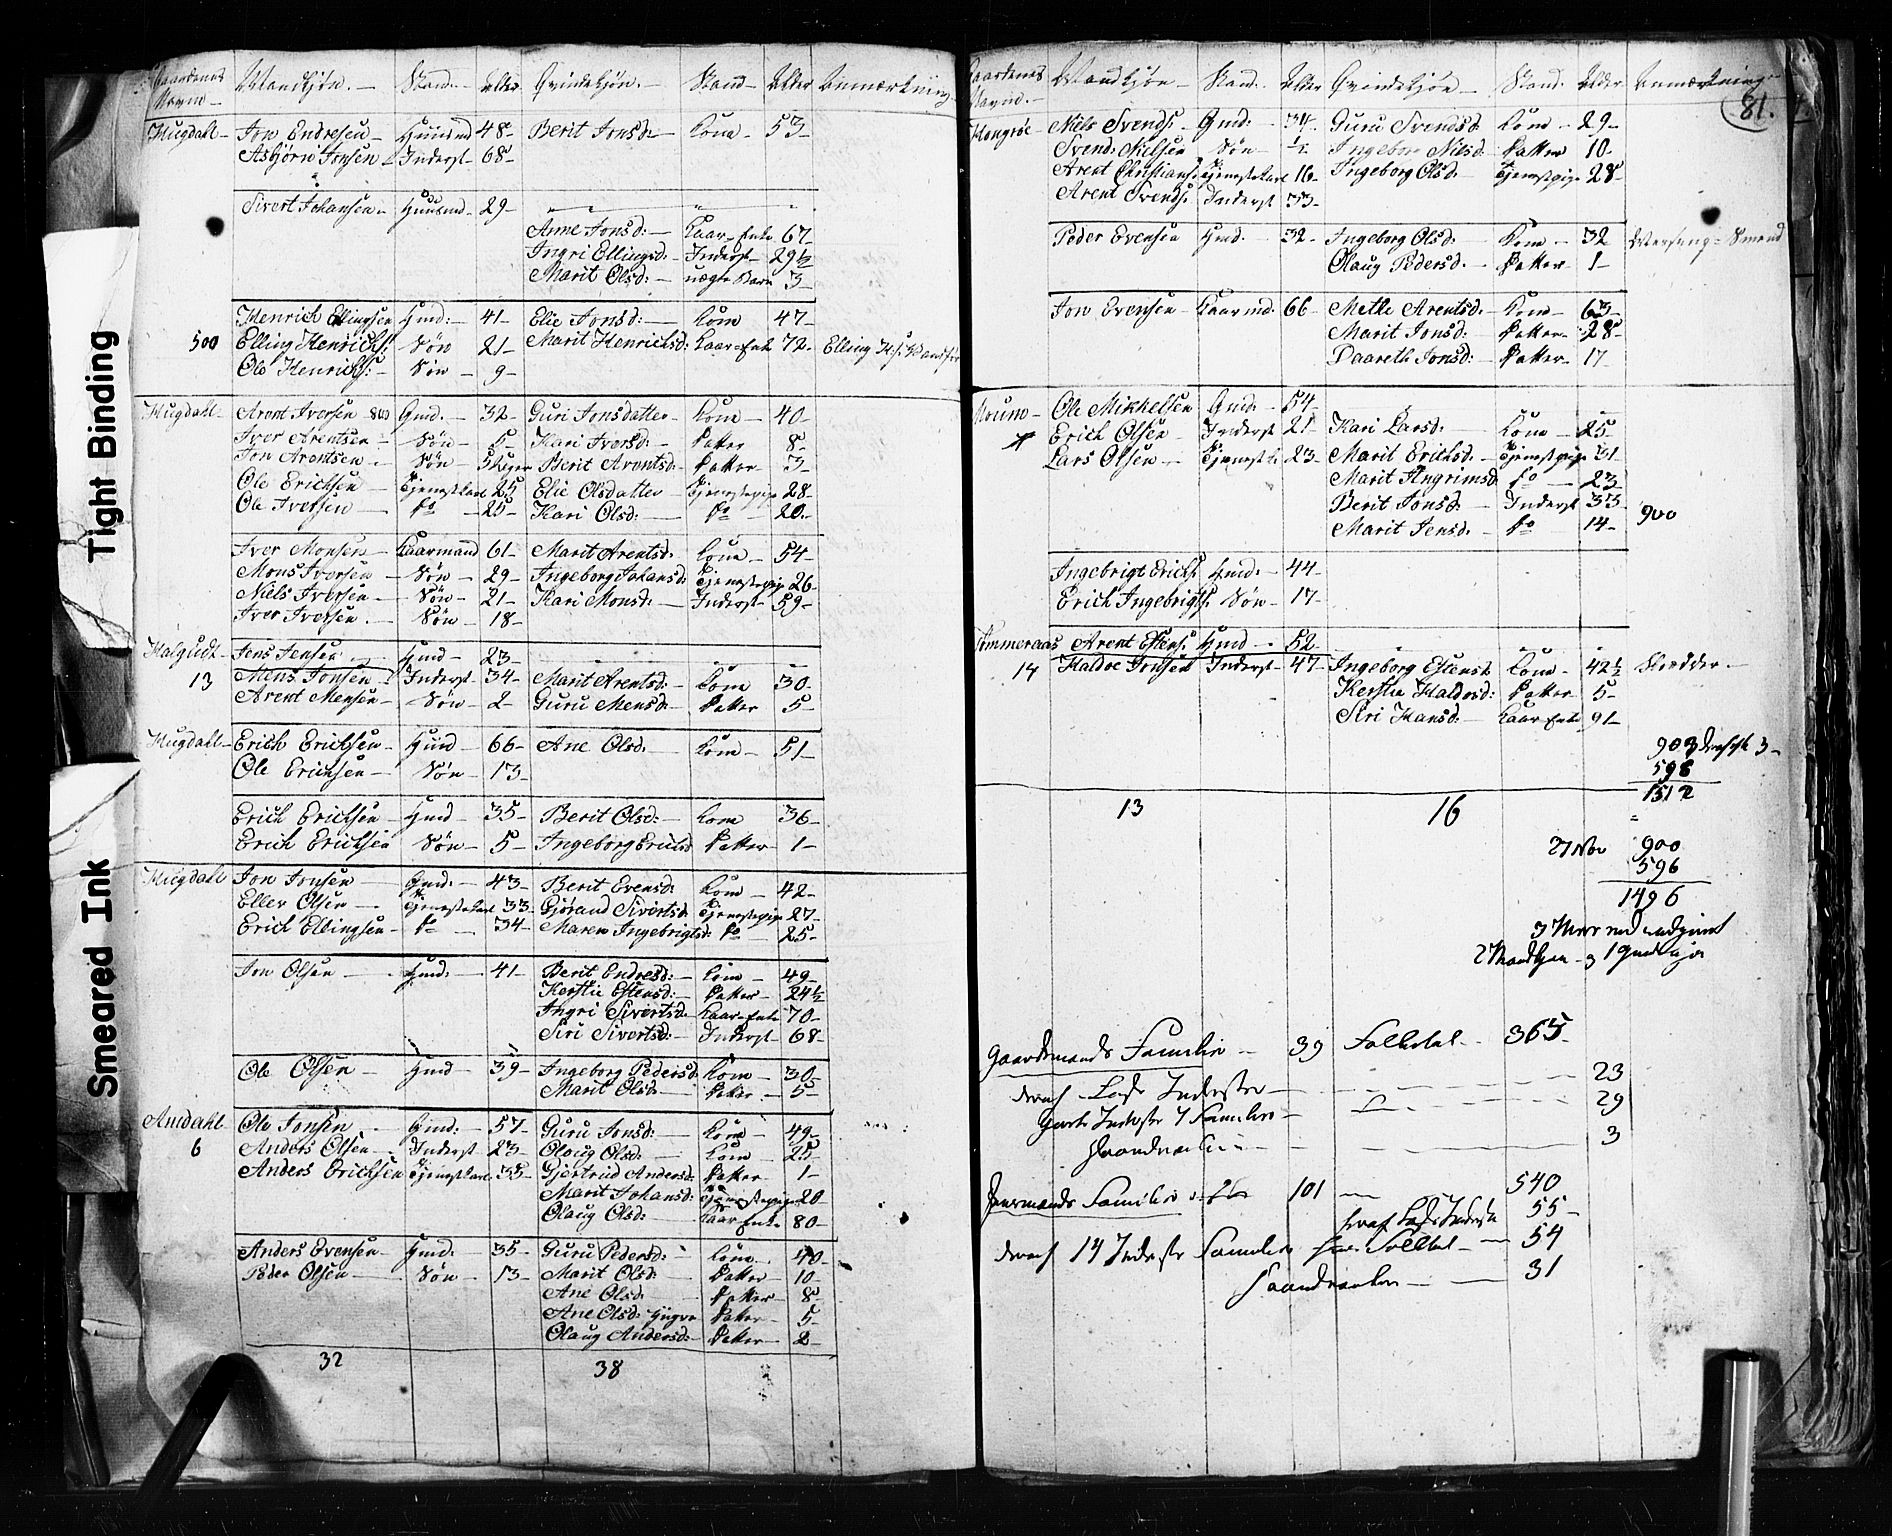 Tight Binding
Smeared Ink
Gaardenes Navn — Mandkjøn. — Stand. — Alder Qvindekjøn. — Stand — Alder Anmærkning
Hugdahl — Jon Endresen — Huusmd 48 — Berit Jonsd: — Kone — 53 —
Asbjørn Jonsen Inderst — 68 —
Sivert Johansen — Huusmd — 29 —
Anne Jonsd: — Kaar-Enke 67 —
Ingri Ellingsd: — Inderst — 29½
Marit Olsd: — uægte Barn 3 —
Henrich Ellingsen Hmd: — 41 — Elie Jonsd: — Kone 47 —
500 Elling Henrichs: Søn 21 — Marit Henrichsd: Kaar-Enke 72 — Elling H:s:
Ole Henrichs: — Søn — 9 —
Hugdahl — Arent Iversen Gmd. — 32 — Guri Jonsdatter — Kone — 40 —
Iver Arentsen — Søn — 5 — Kari Iversd: — Datter 8 —
Jon Arentsen — Søn 5 Uger Berit Arentsd: Datter — 3 —
Ole Erichsen Tjenestekarl 25 Elie Olsdatter — Tjenestepige 28 —
Ole Iversen — do — 25 — Kari Olsd: — do — 20 —
Iver Monsen — Kaarmand 61 — Marit Arentsd: Kone — 54 —
Mons Iversen — Søn — 29 — Ingeborg Johansd: Tjenestepige 26 —
Niels Iversen — Søn — 21 — Kari Monsd: — Inderst — 59 —
Iver Iversen — Søn — 18 —
Jens Jensen — Hmd — 23 —
13 Mens Jonsen — Inderst — 34 — Marit Arentsd: — Kone 30 —
Arent Mensen — Søn — 2 — Guru Mensd: — Datter 5 —
Hugdahl — Erich Erichsen — Hmd — 66 — Ane Olsd. — Kone — 51 —
Ole Erichsen — Søn — 13 —
Erich Erichsen — Hmd — 35 — Berit Olsd: — Kone 36 —
Erich Erichsen Søn — 5 — Ingeborg Erichsd Datter — 1 —
Hugdahl Jon Jonsen — Gmd: — 43 — Berit Evensd: Kone — 42 —
Eller Olsen — Tjenestekarl 33 — Gjørand Sivertsd: Tjenestepige 27 —
Erich Ellingsen — do — 34 — Maren Ingebrigtsd: do — 25 —
Jon Olsen — Hmd: — 41 — Berit Endresd: — Kone — 49 —
Kerstie Estensd: — Datter — 24½
Ingri Sivertsd: — Kaar-Enke 70 —
Siri Sivertsd: — Inderst — 68 —
Ole Olsen — Hmd — 39 — Ingeborg Pedersd: Kone — 30 —
Marit Olsd: — Datter — 5 —
Ole Jonsen — Hmd: — 57 — Guru Jonsd: — Kone — 49 —
6 Anders Olsen — Inderst — 23 — Olaug Olsd: — Kone — 25 —
Anders Erichsen Tjenestekarl 35 — Gjertrud Andersd: Datter 1 —
Marit Johansd: Tjenestepige 20 —
Olaug Olsd: — Kaar Enke 80 —
Anders Evensen Hmd: 35 — Guru Pedersd: Kone 40 —
Peder Olsen — Søn — 13 — Marit Olsd: Datter — 10 —
Ane Olsd: Datter — 8 —
Ane Olsd: yngre Datter — 5 —
Olaug Andersd: — Datter — 2 —
32 38
Gaardenes Navn. — Mandkjøn — Stand. — Alder Qvindekjøn — Stand. Alder Anmærkning
81.
Niels Svends: — Gmd: — 34 — Guru Svendsd Kone — 29 —
Svend Nielsen Søn — Ingeborg Nilsd. Datter 10 —
Arent Christians: Tjenestekarl 16 — Ingeborg Olsd: — Tjenestepige 28 —
Arent Svends: Inderst 33 —
Peder Evensen Hmd. — 32 — Ingeborg Olsd: — Kone — 32
Olaug Pedersd: — Datter — 1 —
Jon Evensen Kaarmd: 66 — Mette Arentsd: Kone — 63 —
Marit Jonsd: Datter — 28 —
Daareth Jonsd: Datter — 17
Ole Mikkelsen Gmd: — 54 —
Erich Olsen — Inderst 21 — Kari Larsd: — Kone — 25 —
Lars Olsen — Tjenestek: 23 — Marit Erichsd: — Tjenestepige 31
Marit Angrimsd: do — 23 —
Berit Jonsd: Inderst 33 —
Marit Jensd: do — 14 — 900
Ingebrigt Erichs: Hmd: — 44 —
Erich Ingebrigts: Søn — 17 —
Arent Estens: Hmd — 52
14 Haldoe Jonsen Inderst — 47 — Ingeborg Estensd: Kone — 42½ Skredder —
Kerstie Haldosd: Datter 5 —
Siri Hansd: — Kaar Enke 91 —
903
598
13 16 1512
27 Nov 900
596
1496
Gaardmands Familier — 39 Folketal — 365 —
deraf Løse Inderster — 23
29
3
Huusmands Familier 101 — 540
deraf Løse Inderste 55 —
deraf 14 Inderste Familier Folketal — 54
31